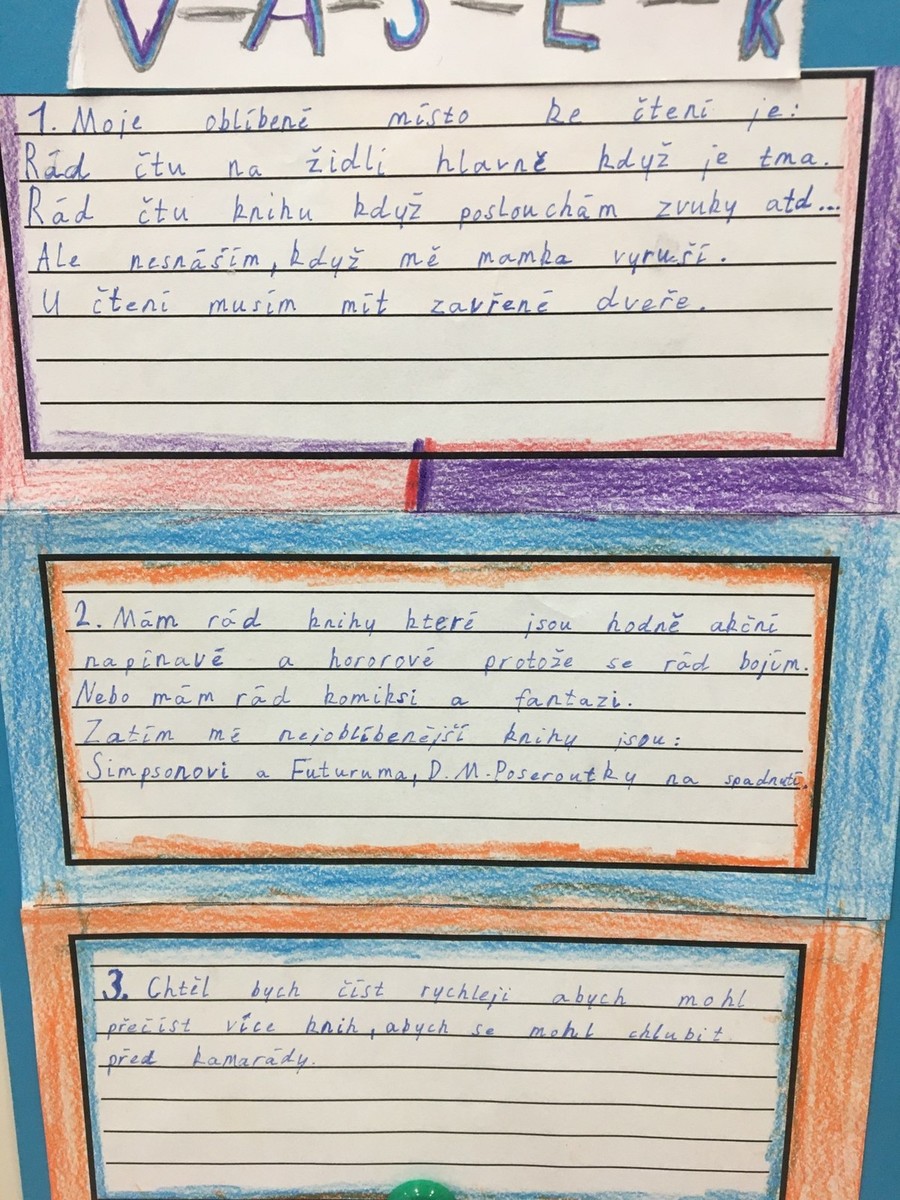 V-A-Š-E-K
1. Moje oblíbené místo ke čtení je:
Rád čtu na židli hlavně když je tma.
Rád čtu knihu když poslouchám zvuky atd...
Ale nesnáším, když mě mamka vyruší.
U čtení musím mít zavřené dveře.
2. Mám rád knihy které jsou hodně akční
napínavé a hororové protože se rád bojím.
Nebo mám rád komiksi a fantazi.
Zatím mé nejoblíbenější knihy jsou:
Simpsonovi a Futuruma, D.M. Poseroutky na spadnutí.
3. Chtěl bych číst rychleji abych mohl
přečíst více knih, abych se mohl chlubit
před kamarády.